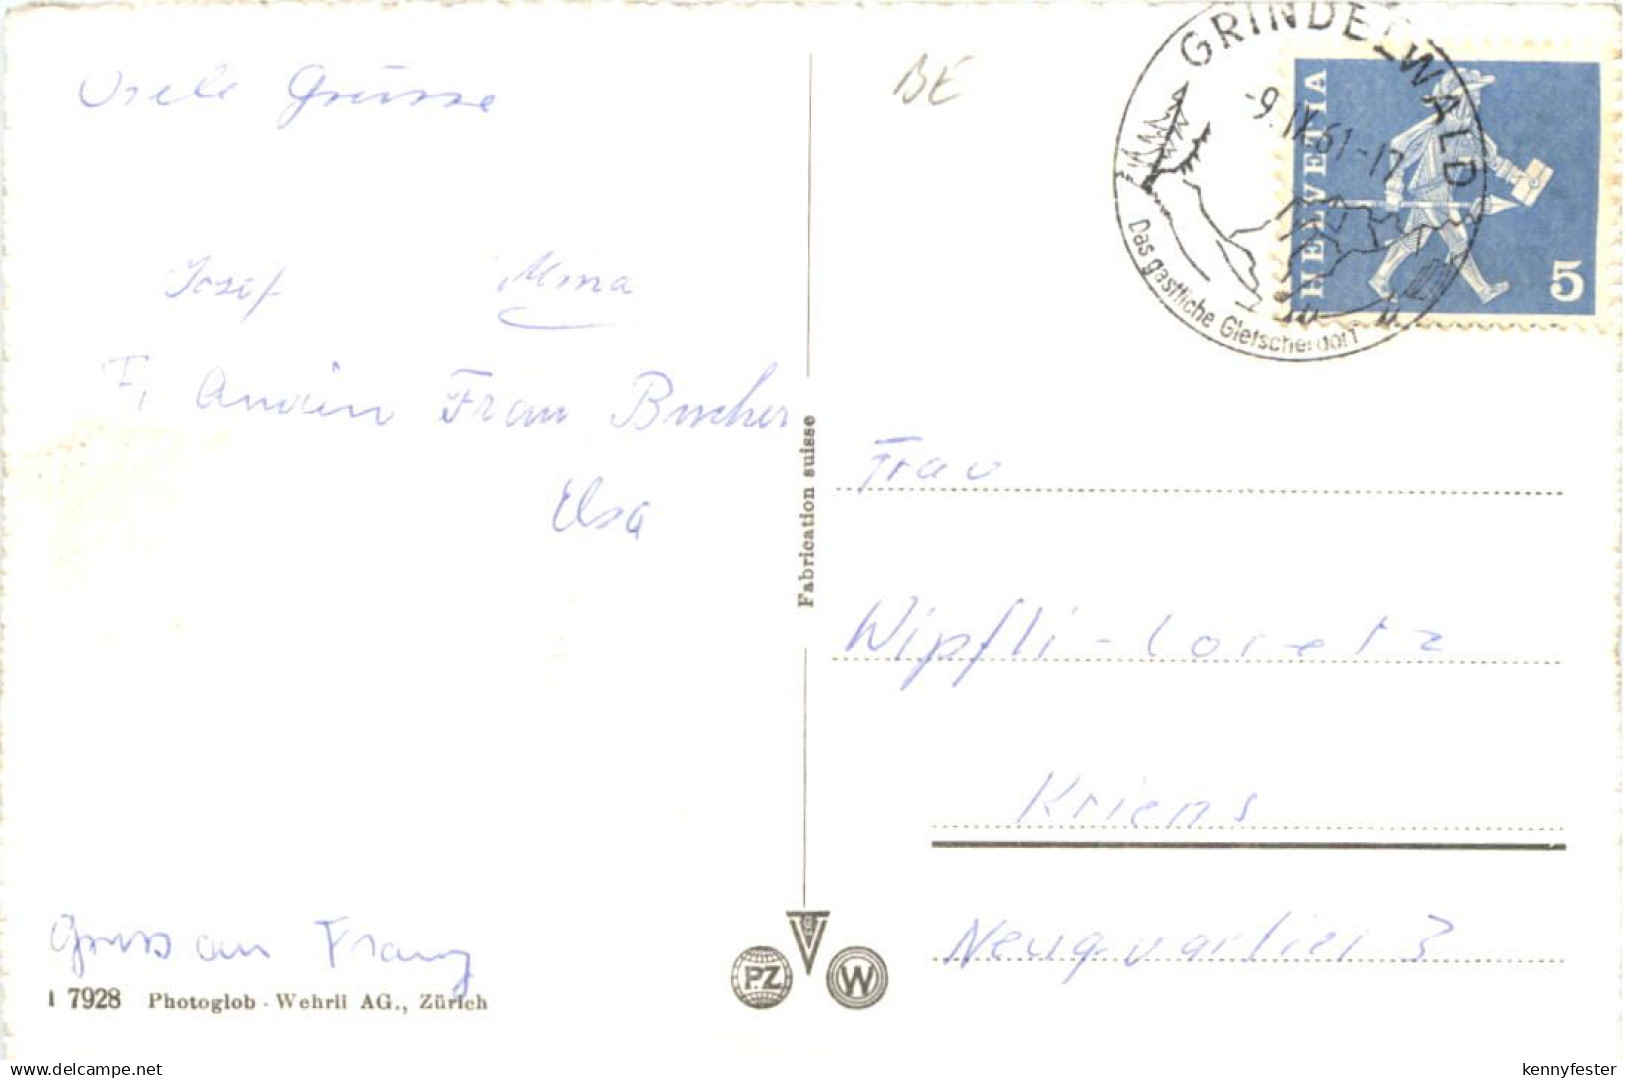 Viele Grüsse
BE
GRINDELWALD
-9.IX.61-17
Das gastliche Gletscherdorf
HELVETIA
5
Josef Mina
Frau Bucher
Elsa
Fabrication suisse
Frau
Wipfli-Loretz
Kriens
Neuquartier 3
Gruss an Franz
7928 Photoglob - Wehrli AG., Zürich
P.Z
W
delcampe.net
kennyfester